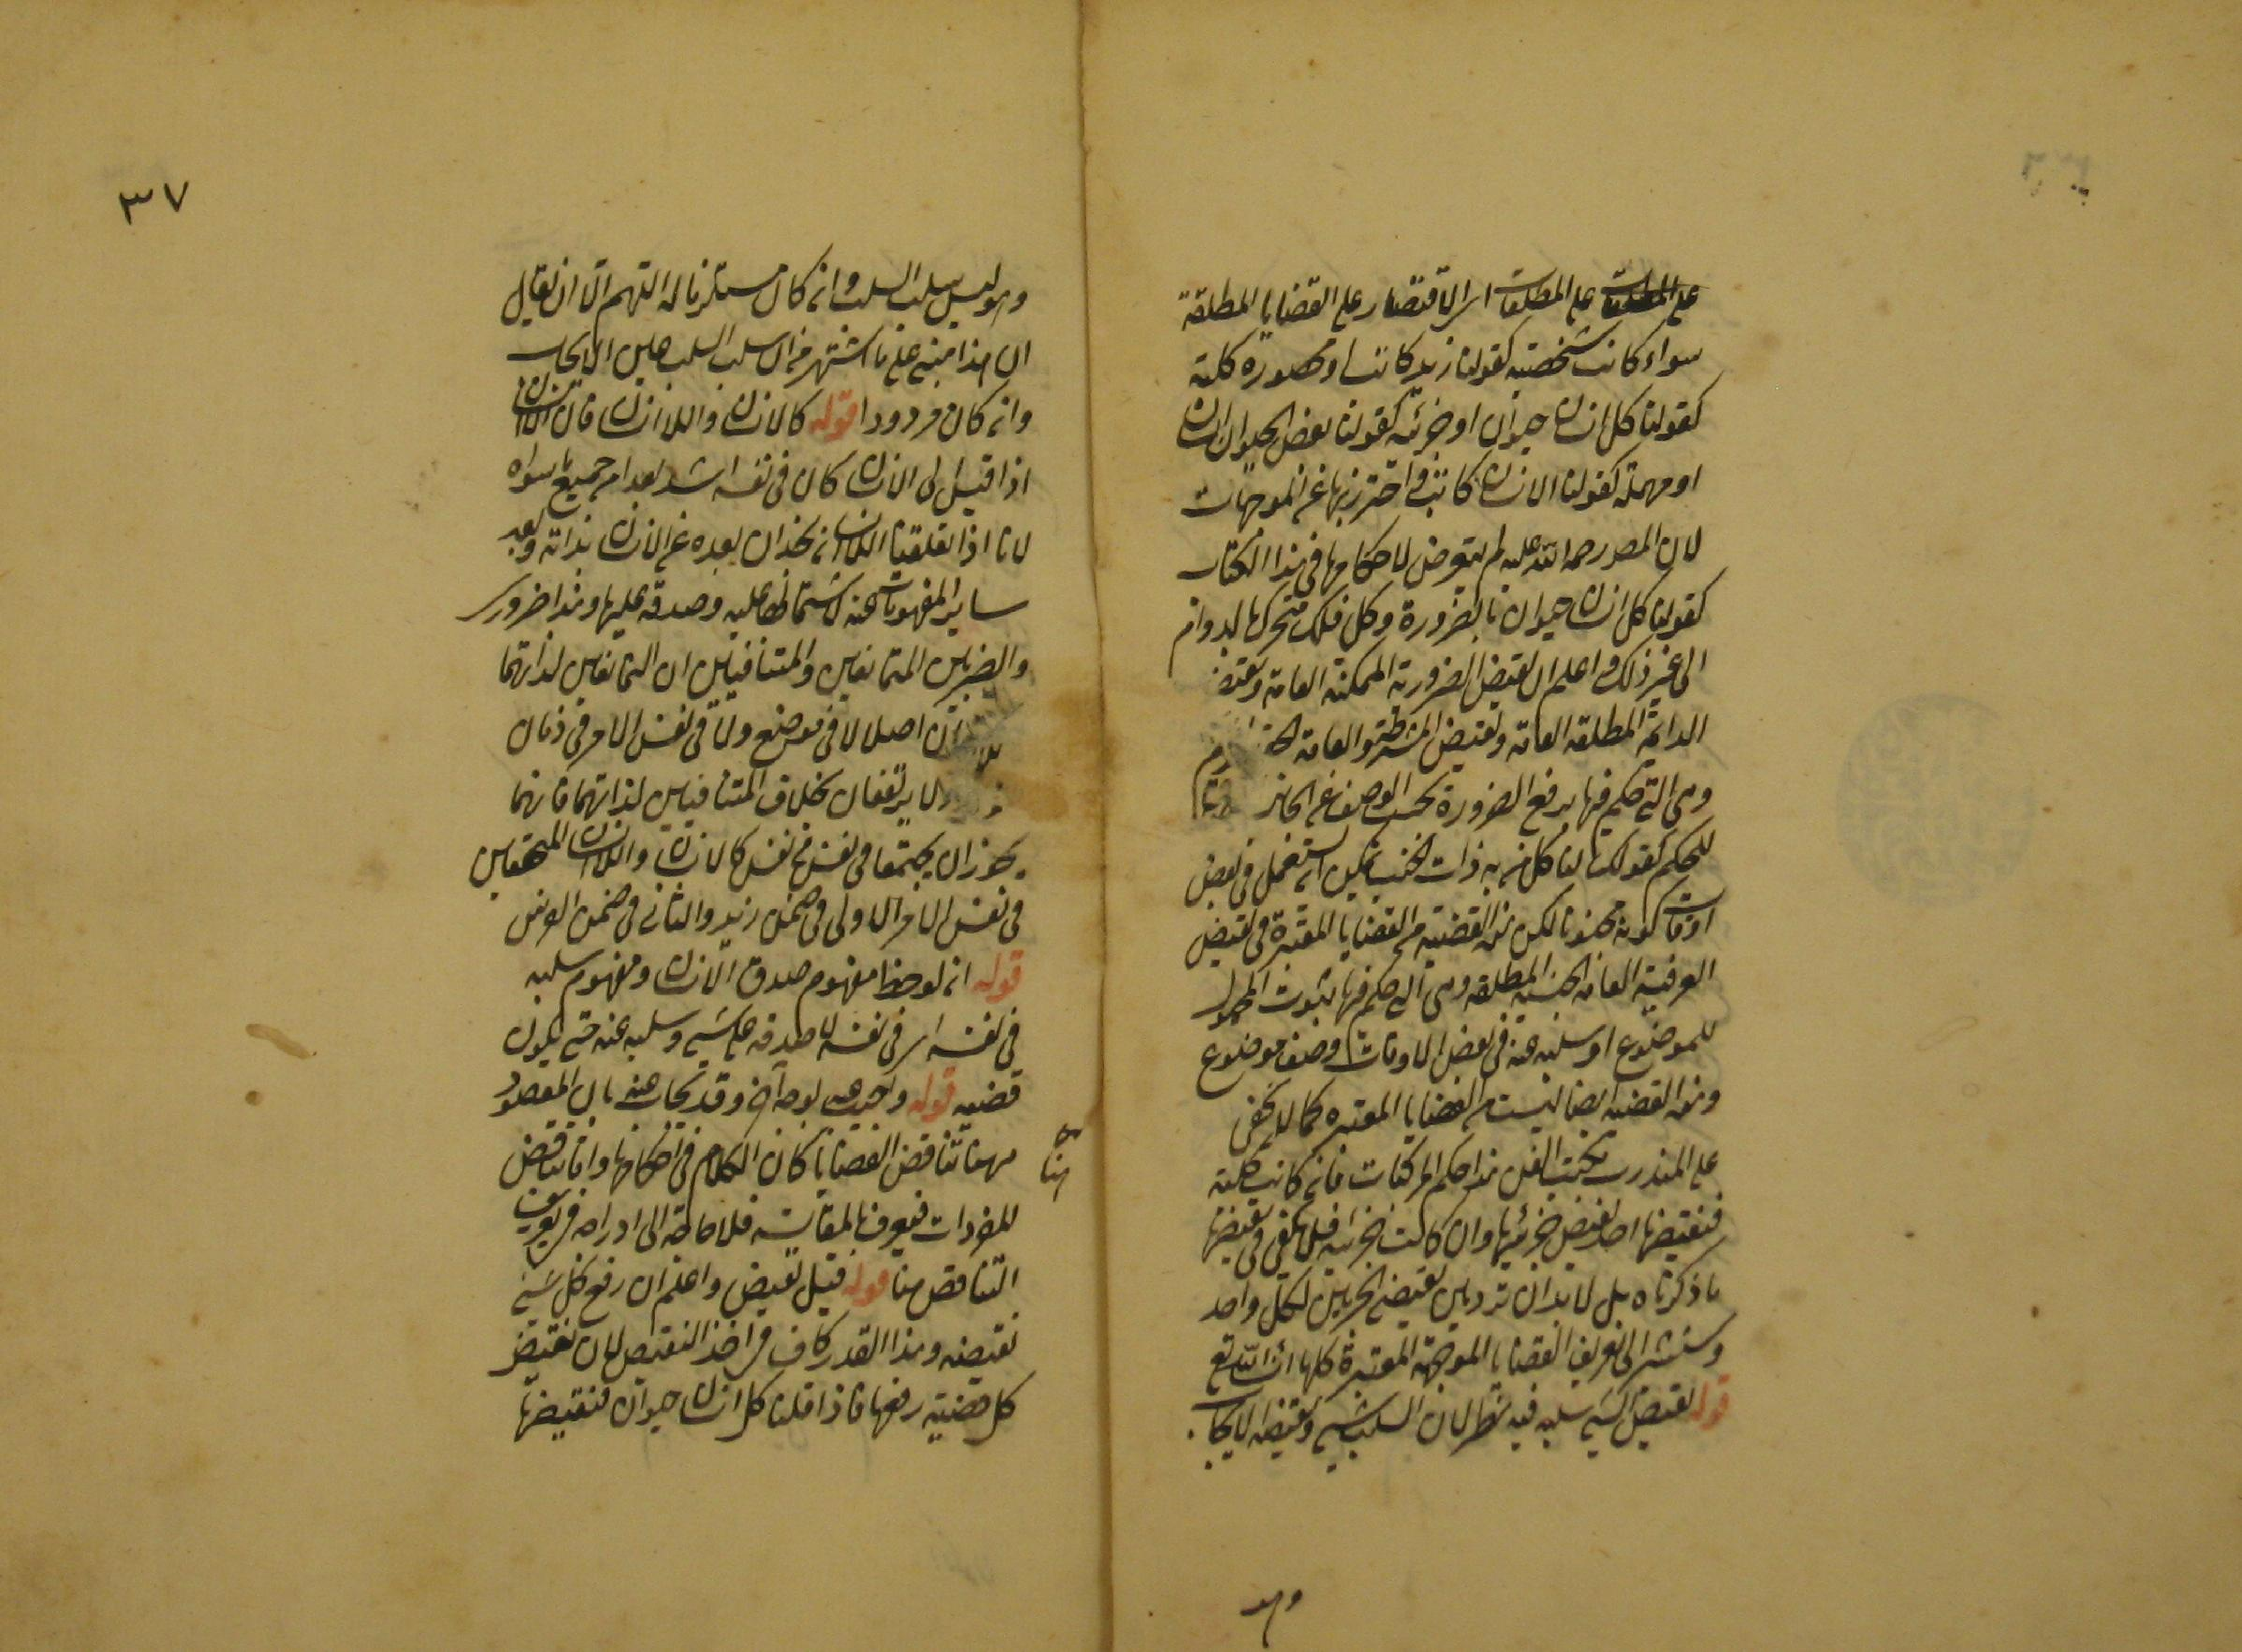 على المطلقات على المطلقات اى الاقتصار على القضايا المطلقة
سواء كانت شخصية كقولنا زيد كاتب او محصورة كلية
كقولنا كل انسان حيوان او جزئية كقولنا بعض الحيوان انسان
او مهملة كقولنا الانسان كاتب واحترز بها عن الموجهات
لان المصر رحمة الله عليه لم يتعرض لاحكامها فى هذا الكتاب
كقولنا كل انسان حيوان بالضرورة وكل فلك متحرك بالدوام
الى غير ذلك واعلم ان نقيض الضرورية الممكنة العامة ونقيض
الدائمة المطلقة العامة ونقيض المشروطة العامة
وهى التى حكم فيها برفع الضرورة بحسب الوصف عن الجانب
للحكم كقولك لنا كل من به ذات الجنب يمكن ان يسعل فى بعض
اوقات كونه مجنوبا لكن هذه القضية من القضايا المعتبرة فى نقيض
العرفية العامة الحينية المطلقة وهى التى حكم فيها بثبوت المحمول
للموضوع او سلبه عنه فى بعض الاوقات وصف موضوع
وهذه القضية ايضا ليست من القضايا المعتبرة كما لا يخفى
على المتدرب بكتب الفن هذا حكم المركبات فانه كانت كلية
فنقيضها احد نقيض جزئيها وان كانت جزئية فلا يكفى فى نقيضها
ما ذكرناه بل لا بد ان تردد بين نقيضى الجزئين لكل واحد
وسنشير الى تعريف القضايا الموجهة المعتبرة كلها ان شا الله تع
قوله نقيض كل شئ سلبه فيه نظر لان السلب شئ ونقيضه الايجاب
وهو
٣٧
وهو ليس سلب السلب وانه كان مستلزما له اللهم الا ان يقال
ان هذا مبنى على ما اشتهر من ان سلب السلب عين الايجاب
وانه كان مردودا قوله كالانسان واللاانسان فان اللاانسان
اذا قيس الى الانسان كان فى نفسه اشد بعدا من جميع ما سواه
لانا اذا تعلقنا اللاانسان نجد ان بعده عن الانسان بذاته وبعد
ساير المفهومات عنه لاشتمالها عليه وصدقه عليها وهذا ضرورى
والفرق بين المتناقضين والمتنافيين ان المتناقضين لذاتهما
ان اصلا لا فى موضع ولا فى نفس الامر فى زمان
ولا يرتفعان بخلاف المتنافيين لذاتهما فانهما
يجوز ان يجتمعا فى نفس من نفس كالانسان واللاانسان المتحققين
فى نفس الامر الاولى فى ضمن زيد والثانى فى ضمن الفرس
قوله ان لوحظ مفهوم صدق الانسان ومفهوم سلبه
فى نفسه اى فى نفسه لا صدقه على شئ وسلبه عنه حتى يكون
قضية قوله واجيب عنه بوجه آخر وقد يجاب عنه بان المقصود
ههنا تناقض القضايا كان الكلام فى احكامها واما تناقض
هنا صح
المفردات فيعرف بالمقايسة فلا حاجة الى ادراجه فى تعريف
التناقض هنا قوله قيل نقيض واعلم ان رفع كل شئ
نقيضه وهذا القدر كاف فى اخذ النقيض لان نقيض
كل قضية رفعها فاذا قلنا كل انسان حيوان فنقيضها